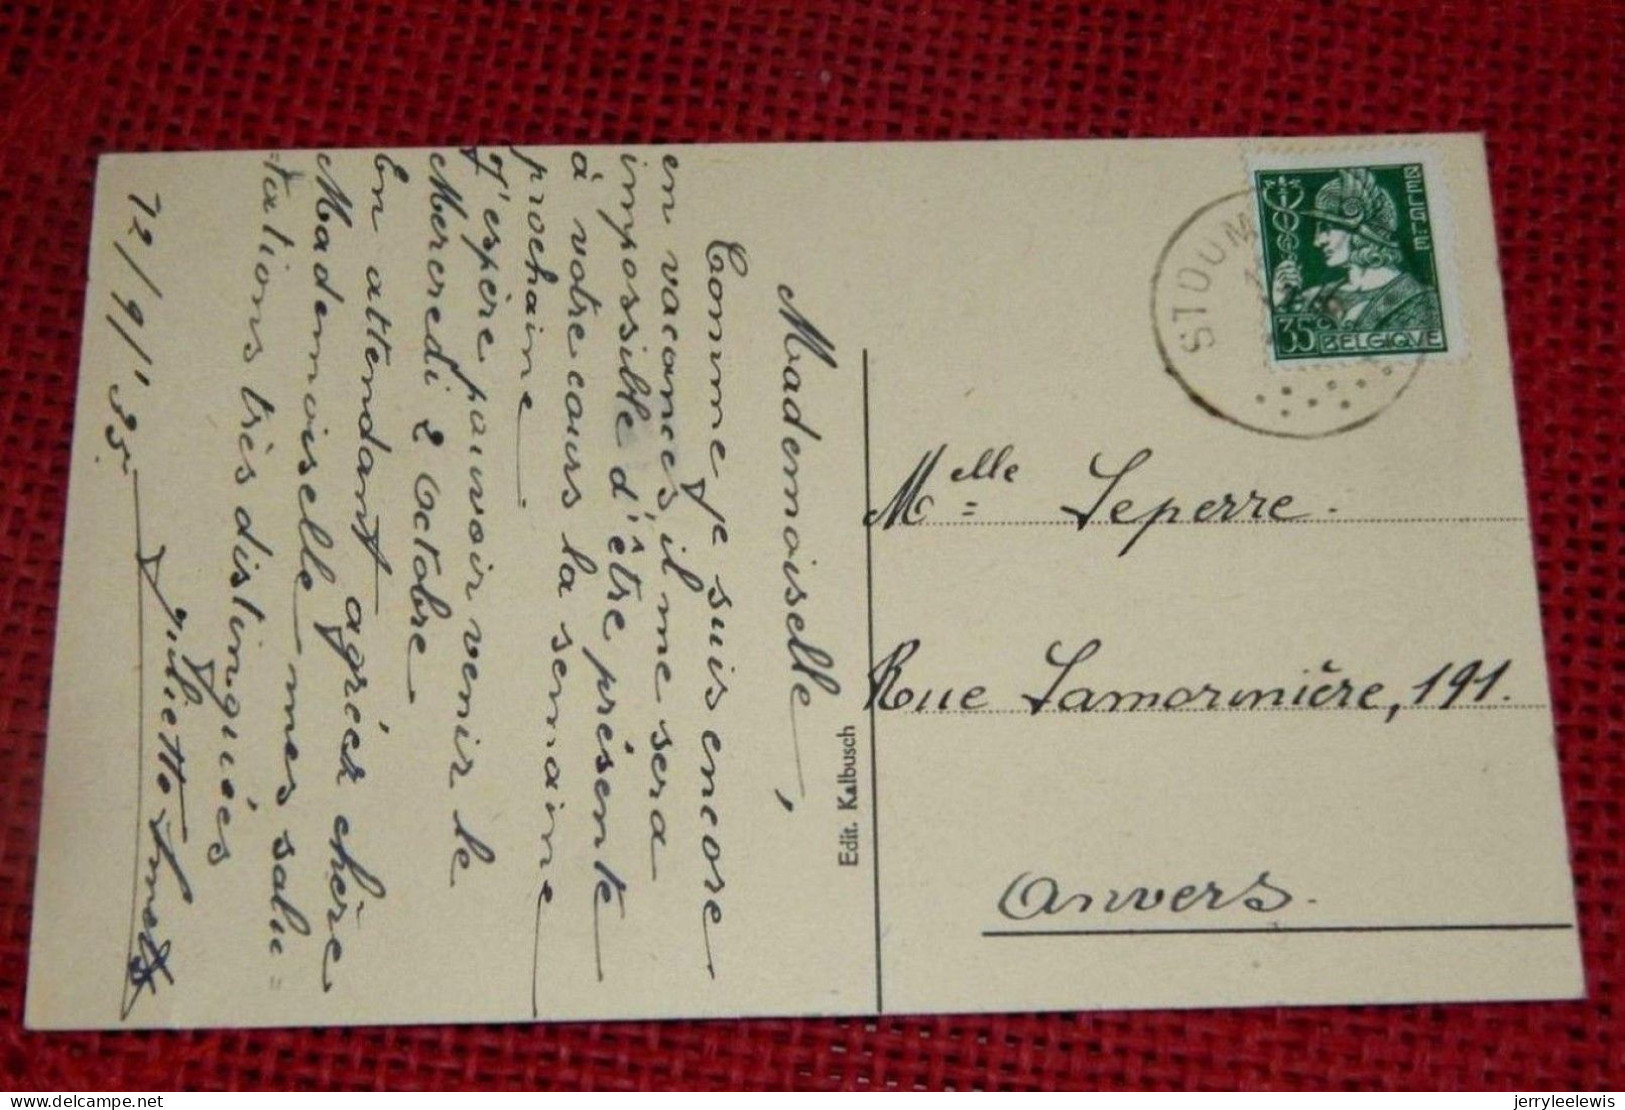 Mademoiselle,
Comme je suis encore
en vacances il me sera
impossible d'être présente
à votre cours la semaine
prochaine.
J'espère pouvoir venir le
Mercredi 2 Octobre
En attendant agréez chère
Mademoiselle mes salu=
=tations très distinguées
Juliette Smets
12/9/'35.
Edit. Kalbusch
STOUM
BELGIË
35 BELGIQVE
Melle Leperre.
Rue Lamorinière, 191.
Anvers.
jerryleelewis
delcampe.net